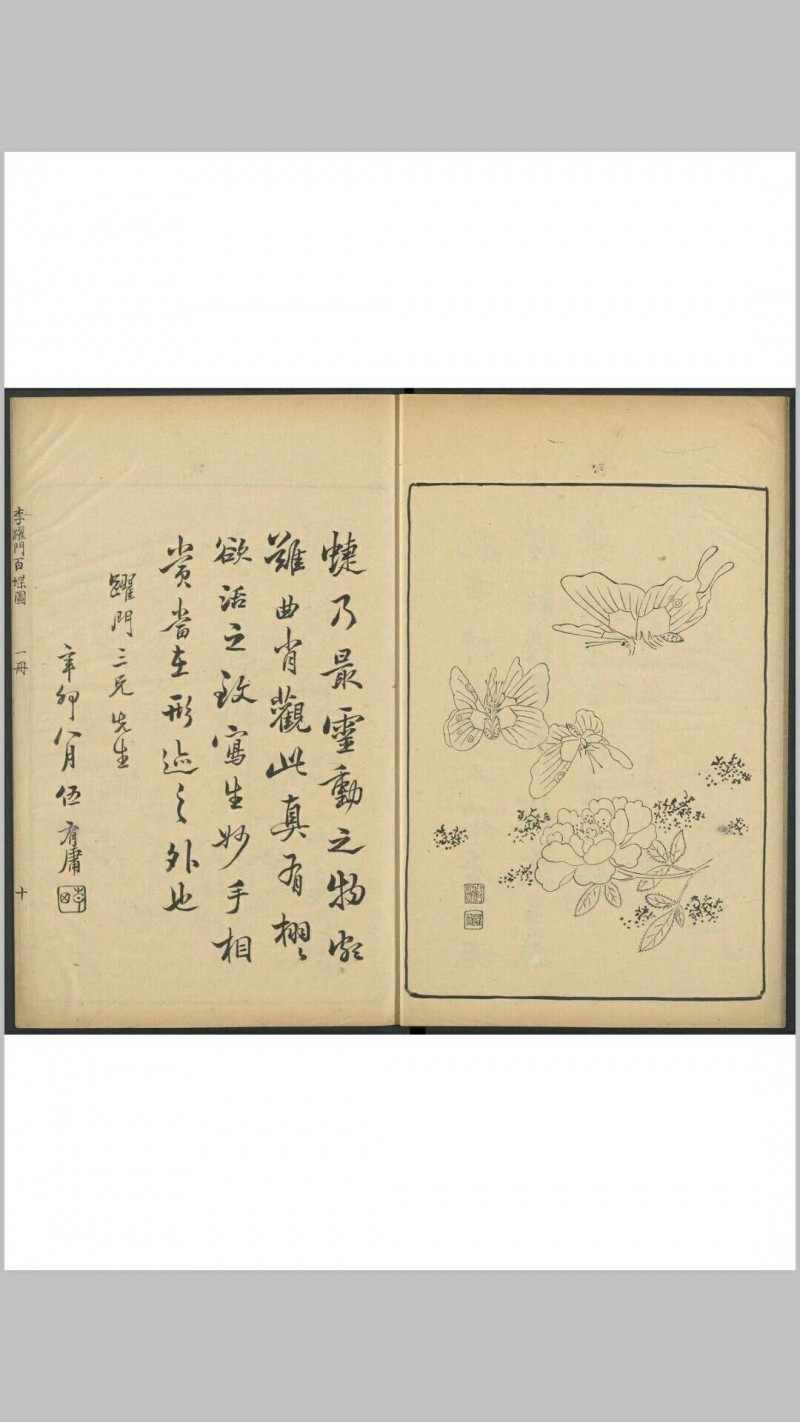 蜨乃最靈動之物最
難曲肖觀此真有栩〻
欲活之致寫生妙手相
賞當在形迹之外也
躍門三兄先生
辛卯八月伍有庸
李躍門百蝶圖 一冊 十